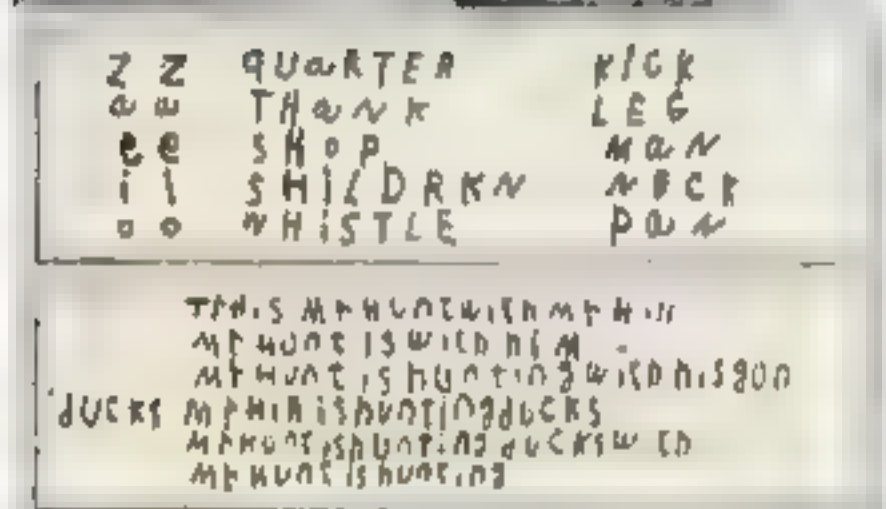 Z Z QUaRTER KICK
a u THaNK LEG
e e SHOP MaN
i l SHILDRKN NECK
o o WHiSTLE PaN
THis Mr Hunt with Mr Hill
Mr Hunt is with him
Mr Hunt is hunting with his gun
ducks Mr Hill is hunting ducks
Mr Hunt is hunting ducks with
Mr Hunt is hunting